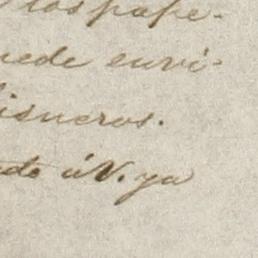 los pape-
uede envi-
isneros.
ado á V. ya